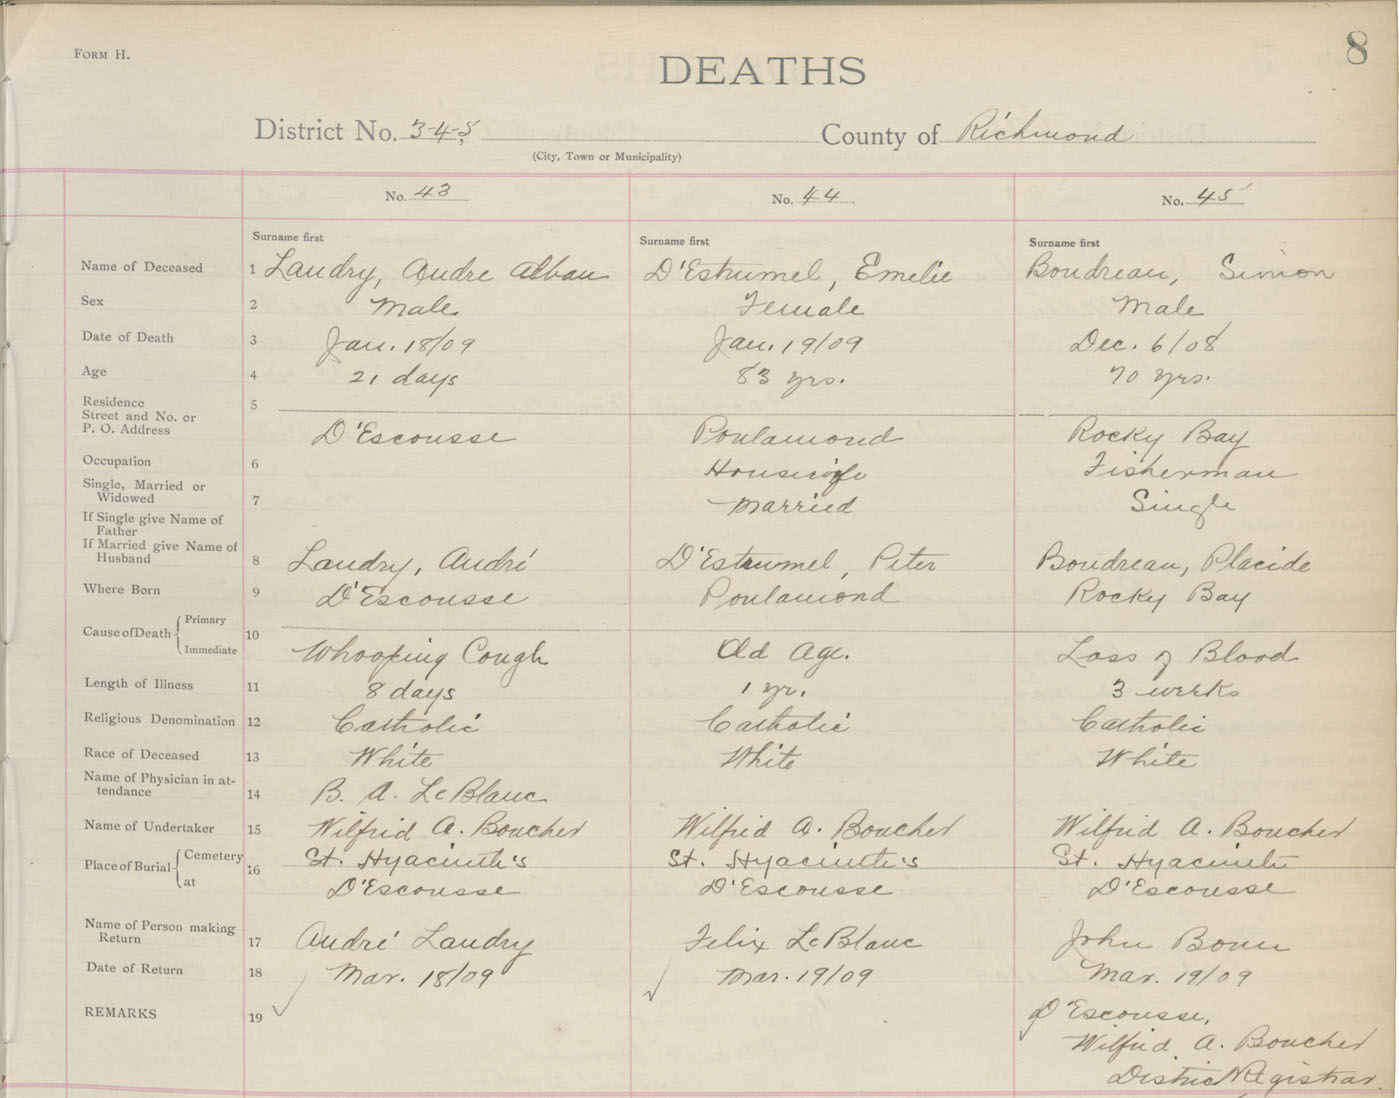 FORM H.
8
DEATHS
District No. 345, County of Richmond
(City, Town or Municipality)
No. 43 No. 44 No. 45
Surname first Surname first Surname first
Name of Deceased 1 Landry, Andre Alban D'Estrumel, Emelie Boudreau, Simon
Sex 2 Male Female Male
Date of Death 3 Jan. 18/09 Jan. 19/09 Dec. 6/08
Age 4 21 days 83 yrs. 70 yrs.
Residence 5
Street and No. or
P. O. Address D'Escousse Poulamond Rocky Bay
Occupation 6 Housewife Fisherman
Single, Married or
Widowed 7 Married Single
If Single give Name of
Father
If Married give Name of
Husband 8 Landry, André D'Estrumel, Peter Boudreau, Placide
Where Born 9 D'Escousse Poulamond Rocky Bay
Cause of Death Primary 10
Immediate Whooping Cough Old Age. Loss of Blood
Length of Illness 11 8 days 1 yr. 3 weeks
Religious Denomination 12 Catholic Catholic Catholic
Race of Deceased 13 White White White
Name of Physician in at-
tendance 14 B. A. LeBlanc
Name of Undertaker 15 Wilfrid A. Boucher Wilfrid A. Boucher Wilfrid A. Boucher
Place of Burial Cemetery 16 St. Hyacinthe's St. Hyacinthe's St. Hyacinthe
at D'Escousse D'Escousse D'Escousse
Name of Person making
Return 17 André Landry Felix LeBlanc John
Date of Return 18 Mar. 18/09 Mar. 19/09 Mar. 19/09
REMARKS 19 D'Escousse,
Wilfrid A. Boucher
District Registrar.